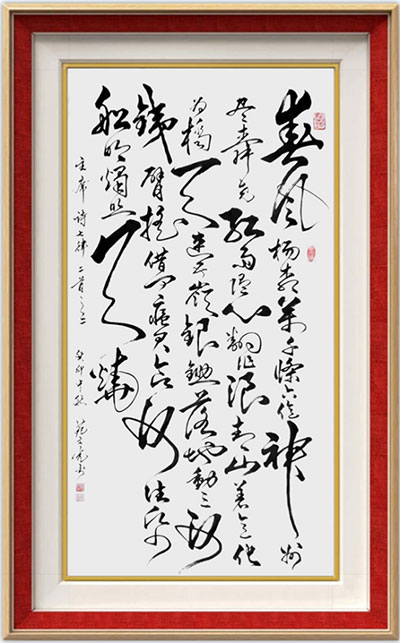 春风杨柳萬千條六億神州
尽舜尧红雨随心翻作浪青山着意化
为橋天连五嶺銀鋤落地動三河
鐵臂摇借问瘟君欲何往纸
船明燭照天燒
主席诗七律二首之二
癸卯